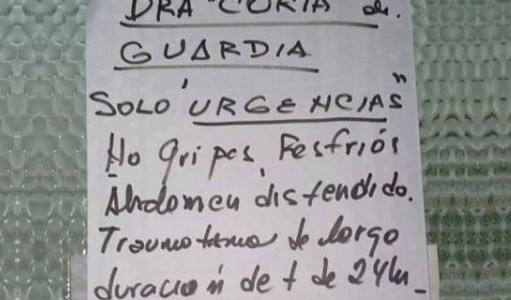 DRA CORIA de.
GUARDIA
SOLO "URGENCIAS"
No Gripes, Resfriós
Abdomen distendido.
Traumatismo de largo
duración de + de 24hs_